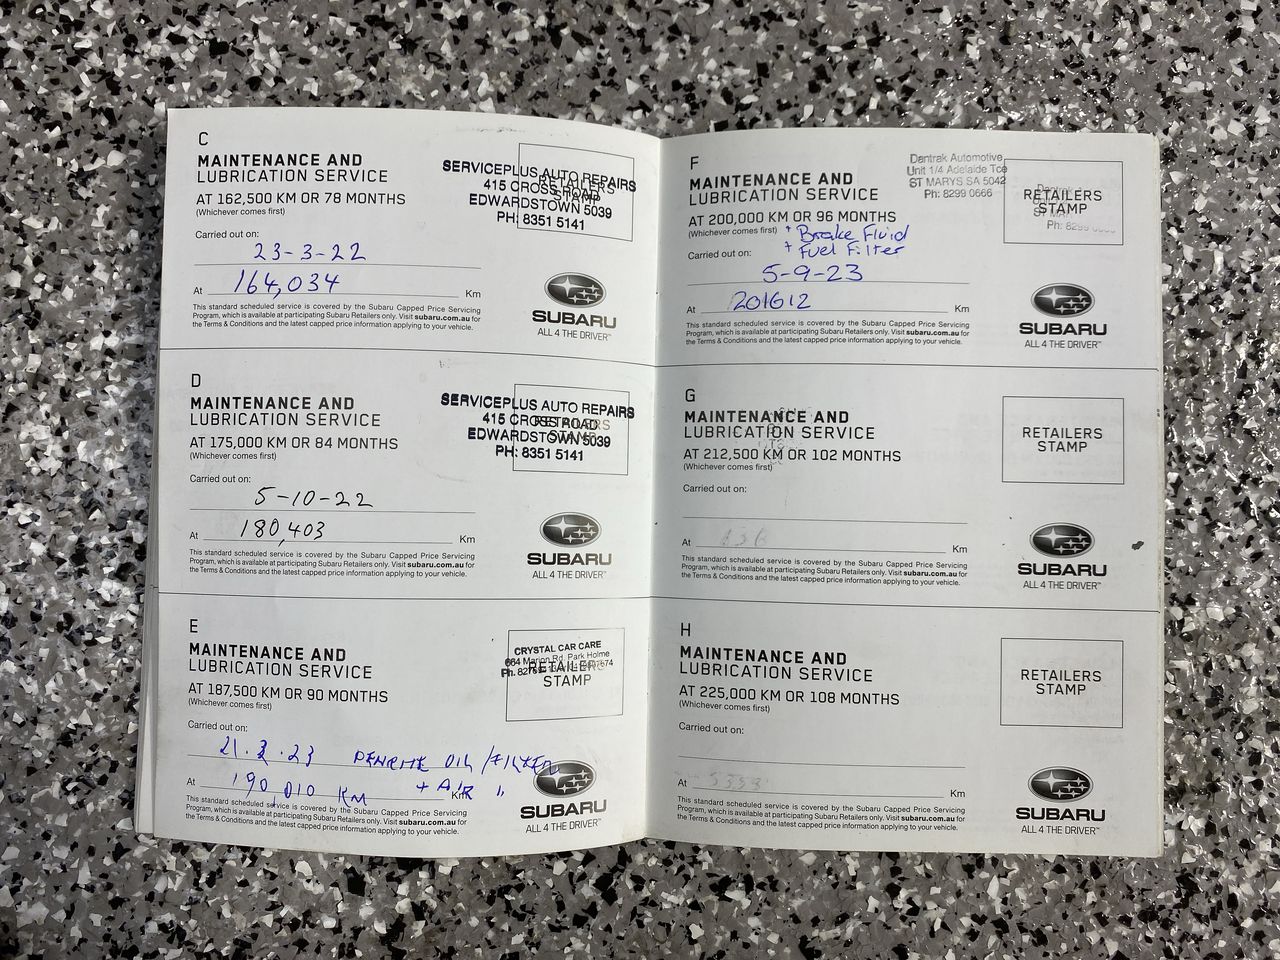 C
MAINTENANCE AND
LUBRICATION SERVICE
AT 162,500 KM OR 78 MONTHS
(Whichever comes first)
Carried out on:
23-3-22
At 164,034 Km
This standard scheduled service is covered by the Subaru Capped Price Servicing
Program, which is available at participating Subaru Retailers only. Visit subaru.com.au for
the Terms & Conditions and the latest capped price information applying to your vehicle.
RETAILERS
STAMP
SERVICEPLUS AUTO REPAIRS
415 CROSS ROAD
EDWARDSTOWN 5039
PH: 8351 5141
SUBARU
ALL 4 THE DRIVER™
D
MAINTENANCE AND
LUBRICATION SERVICE
AT 175,000 KM OR 84 MONTHS
(Whichever comes first)
Carried out on:
5-10-22
At 180,403 Km
This standard scheduled service is covered by the Subaru Capped Price Servicing
Program, which is available at participating Subaru Retailers only. Visit subaru.com.au for
the Terms & Conditions and the latest capped price information applying to your vehicle.
RETAILERS
STAMP
SERVICEPLUS AUTO REPAIRS
415 CROSS ROAD
EDWARDSTOWN 5039
PH: 8351 5141
SUBARU
ALL 4 THE DRIVER™
E
MAINTENANCE AND
LUBRICATION SERVICE
AT 187,500 KM OR 90 MONTHS
(Whichever comes first)
Carried out on:
21.3.23 PENRITE OIL / FILTER
At 190,010 KM + AIR " Km
This standard scheduled service is covered by the Subaru Capped Price Servicing
Program, which is available at participating Subaru Retailers only. Visit subaru.com.au for
the Terms & Conditions and the latest capped price information applying to your vehicle.
RETAILERS
STAMP
CRYSTAL CAR CARE
664 Marion Rd, Park Holme
SUBARU
ALL 4 THE DRIVER™
F
MAINTENANCE AND
LUBRICATION SERVICE
AT 200,000 KM OR 96 MONTHS
(Whichever comes first) + Brake Fluid
Carried out on: + Fuel Filter
5-9-23
At 201612 Km
This standard scheduled service is covered by the Subaru Capped Price Servicing
Program, which is available at participating Subaru Retailers only. Visit subaru.com.au for
the Terms & Conditions and the latest capped price information applying to your vehicle.
Dantrak Automotive
Unit 1/4 Adelaide Tce
ST MARYS SA 5042
Ph: 8299 0666
RETAILERS
STAMP
SUBARU
ALL 4 THE DRIVER™
G
MAINTENANCE AND
LUBRICATION SERVICE
AT 212,500 KM OR 102 MONTHS
(Whichever comes first)
Carried out on:
At Km
This standard scheduled service is covered by the Subaru Capped Price Servicing
Program, which is available at participating Subaru Retailers only. Visit subaru.com.au for
the Terms & Conditions and the latest capped price information applying to your vehicle.
RETAILERS
STAMP
SUBARU
ALL 4 THE DRIVER™
H
MAINTENANCE AND
LUBRICATION SERVICE
AT 225,000 KM OR 108 MONTHS
(Whichever comes first)
Carried out on:
At Km
This standard scheduled service is covered by the Subaru Capped Price Servicing
Program, which is available at participating Subaru Retailers only. Visit subaru.com.au for
the Terms & Conditions and the latest capped price information applying to your vehicle.
RETAILERS
STAMP
SUBARU
ALL 4 THE DRIVER™